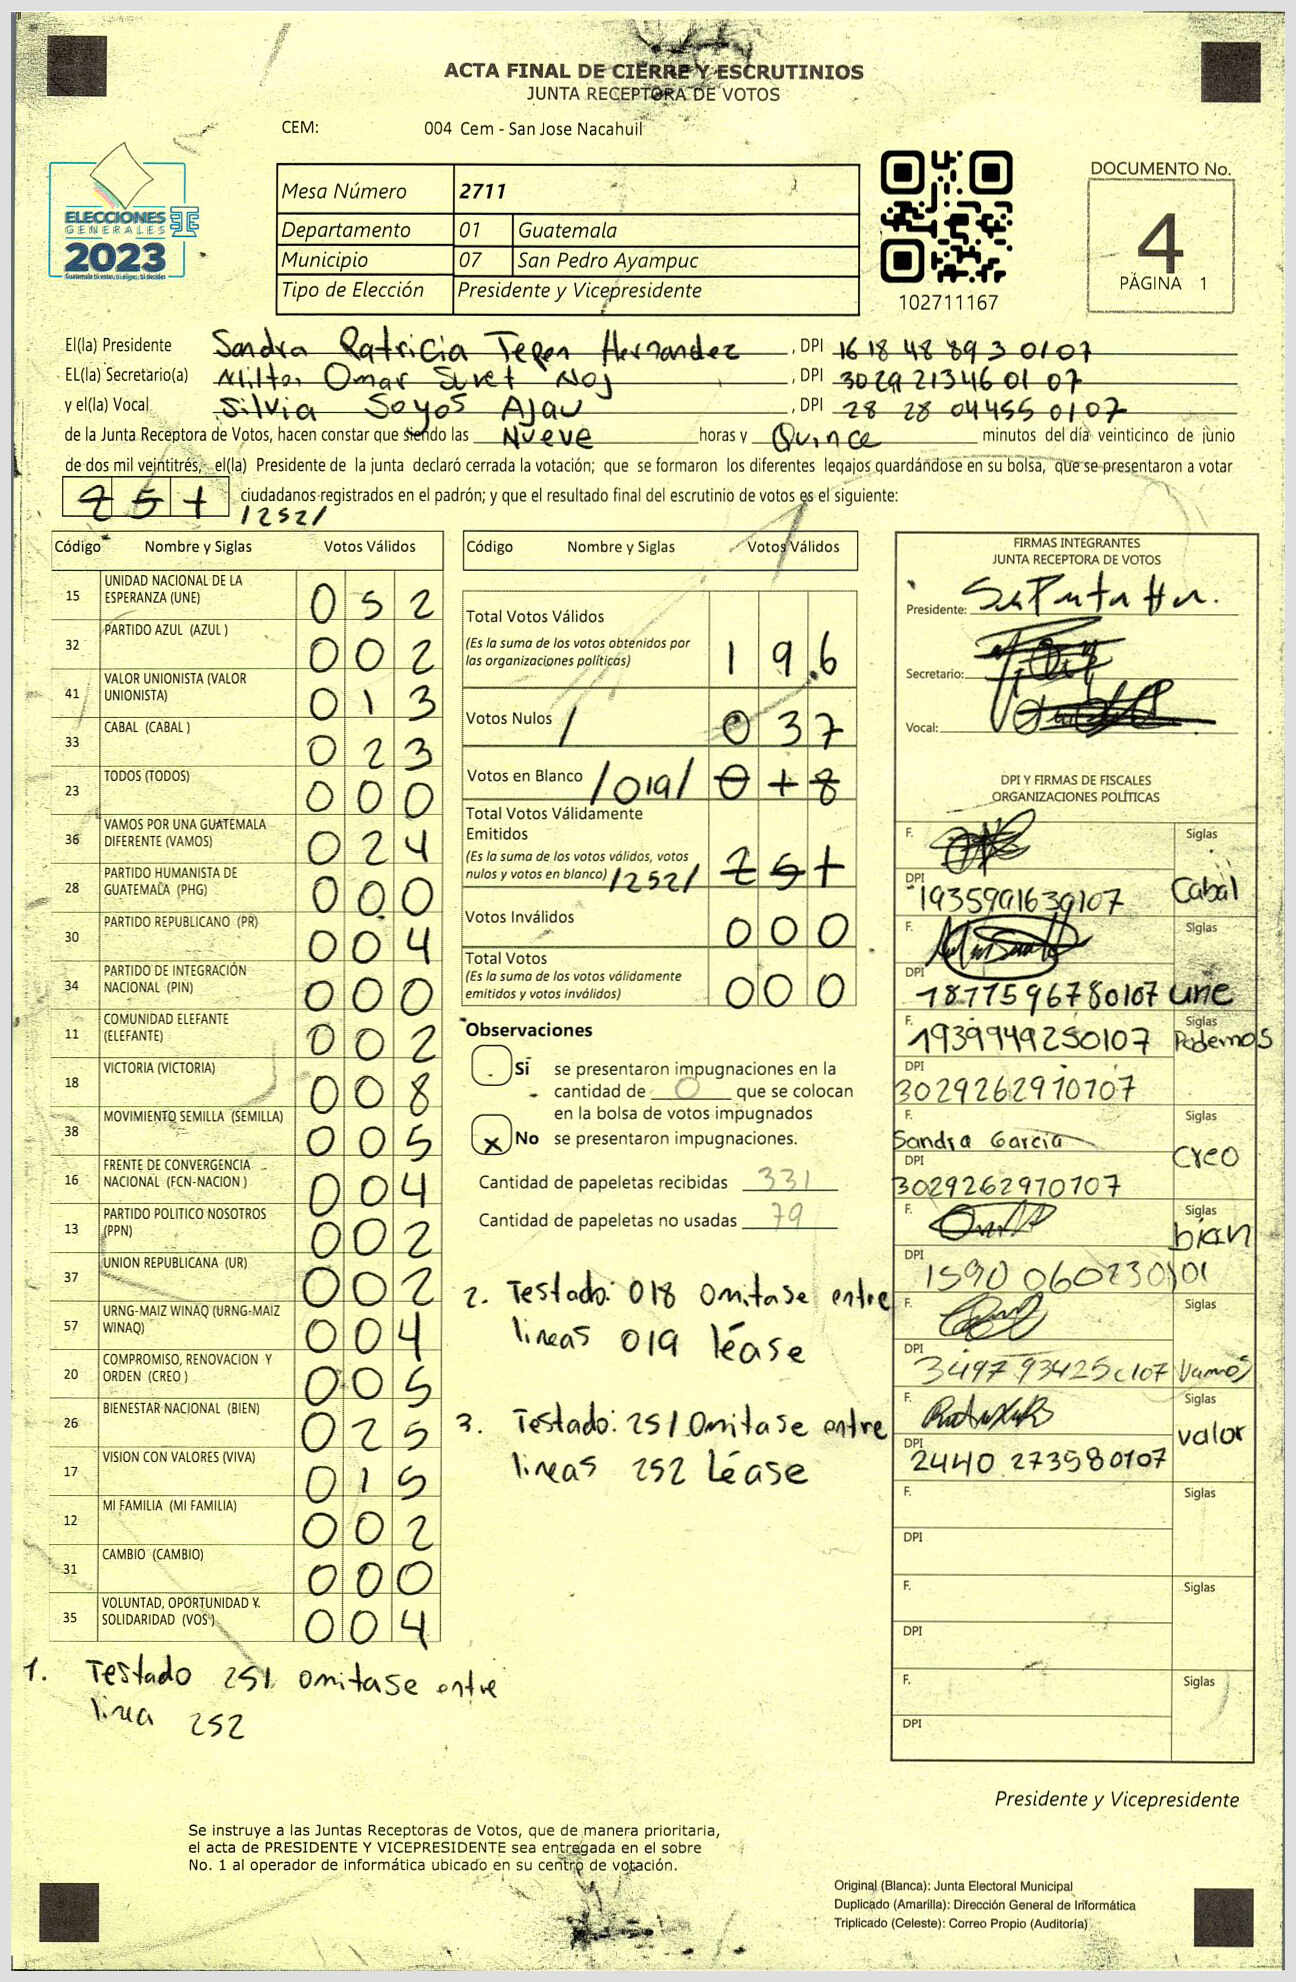 ACTA FINAL DE CIERRE Y ESCRUTINIOS
JUNTA RECEPTORA DE VOTOS
CEM: 004 Cem - San Jose Nacahuil
ELECCIONES
GENERALES
2023
Mesa Número 2711
Departamento 01 Guatemala
Municipio 07 San Pedro Ayampuc
Tipo de Elección Presidente y Vicepresidente
102711167
DOCUMENTO No.
4
PÁGINA 1
El(la) Presidente Sandra Patricia Tepen Hernandez , DPI 1618 48 893 0107
EL(la) Secretario(a) Milton Omar Suret Noj , DPI 3029213460107
y el(la) Vocal Silvia Soyos Ajau , DPI 28 28 04455 0107
de la Junta Receptora de Votos, hacen constar que siendo las Nueve horas y Quince minutos del día veinticinco de junio
de dos mil veintitrés, el(la) Presidente de la junta declaró cerrada la votación; que se formaron los diferentes legajos guardándose en su bolsa, que se presentaron a votar
251 ciudadanos registrados en el padrón; y que el resultado final del escrutinio de votos es el siguiente:
/252/
Código Nombre y Siglas Votos Válidos
15 UNIDAD NACIONAL DE LA ESPERANZA (UNE) 052
32 PARTIDO AZUL (AZUL ) 002
41 VALOR UNIONISTA (VALOR UNIONISTA) 013
33 CABAL (CABAL ) 023
23 TODOS (TODOS) 000
36 VAMOS POR UNA GUATEMALA DIFERENTE (VAMOS) 024
28 PARTIDO HUMANISTA DE GUATEMALA (PHG) 000
30 PARTIDO REPUBLICANO (PR) 004
34 PARTIDO DE INTEGRACIÓN NACIONAL (PIN) 000
11 COMUNIDAD ELEFANTE (ELEFANTE) 002
18 VICTORIA (VICTORIA) 008
38 MOVIMIENTO SEMILLA (SEMILLA) 005
16 FRENTE DE CONVERGENCIA NACIONAL (FCN-NACION ) 004
13 PARTIDO POLITICO NOSOTROS (PPN) 002
37 UNION REPUBLICANA (UR) 002
57 URNG-MAIZ WINAQ (URNG-MAIZ WINAQ) 004
20 COMPROMISO, RENOVACION Y ORDEN (CREO ) 005
26 BIENESTAR NACIONAL (BIEN) 025
17 VISION CON VALORES (VIVA) 015
12 MI FAMILIA (MI FAMILIA) 002
31 CAMBIO (CAMBIO) 000
35 VOLUNTAD, OPORTUNIDAD Y SOLIDARIDAD (VOS ) 004
1. Testado 251 omitase entre
linea 252
Código Nombre y Siglas Votos Válidos
Total Votos Válidos
(Es la suma de los votos obtenidos por
las organizaciones políticas) 196
Votos Nulos / 037
Votos en Blanco /019/ 018
Total Votos Válidamente
Emitidos
(Es la suma de los votos válidos, votos
nulos y votos en blanco) /252/ 251
Votos Inválidos 000
Total Votos
(Es la suma de los votos válidamente
emitidos y votos inválidos) 000
Observaciones
Si se presentaron impugnaciones en la
cantidad de 0 que se colocan
en la bolsa de votos impugnados
x No se presentaron impugnaciones.
Cantidad de papeletas recibidas 331
Cantidad de papeletas no usadas 79
2. Testado: 018 omitase entre
lineas 019 léase
3. Testado: 251 Omitase entre
lineas 252 Léase
FIRMAS INTEGRANTES
JUNTA RECEPTORA DE VOTOS
Presidente:
Secretario:
Vocal:
DPI Y FIRMAS DE FISCALES
ORGANIZACIONES POLÍTICAS
F. Siglas
DPI 1935991639107 Cabal
F. Siglas
DPI 1877596780107 une
F. 1939949250107 Siglas Podemos
DPI 3029262970707
F. Sandra Garcia Siglas
DPI 3029262970707 creo
F. Siglas bien
DPI 1590 060230101
F. Siglas
DPI Vamos
F. Siglas
DPI 2440 273580107 valor
F. Siglas
DPI
F. Siglas
DPI
F. Siglas
DPI
Presidente y Vicepresidente
Se instruye a las Juntas Receptoras de Votos, que de manera prioritaria,
el acta de PRESIDENTE Y VICEPRESIDENTE sea entregada en el sobre
No. 1 al operador de informática ubicado en su centro de votación.
Original (Blanca): Junta Electoral Municipal
Duplicado (Amarilla): Dirección General de Informática
Triplicado (Celeste): Correo Propio (Auditoría)